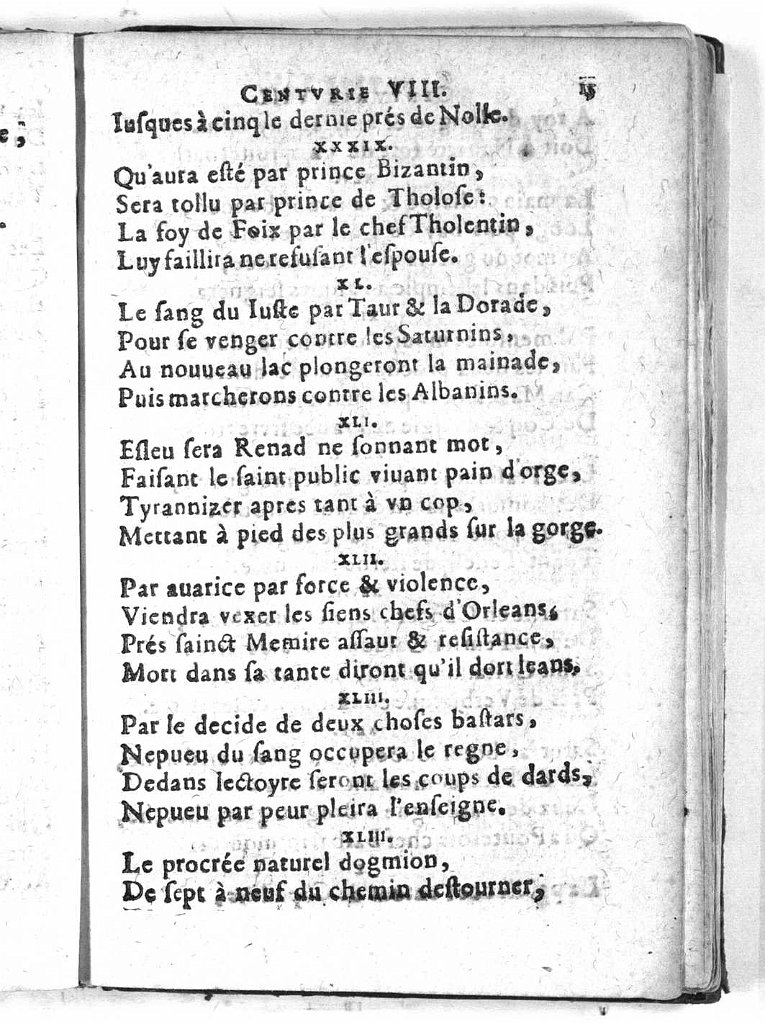 CENTVRIE VIII. 15
Iuſques à cinq le dernie prés de Nolle.
XXXIX.
Qu'aura eſté par prince Bizantin,
Sera tollu par prince de Tholoſe:
La foy de Foix par le chef Tholentin,
Luy faillira ne refuſant l'eſpouſe.
XL.
Le ſang du Iuſte par Taur & la Dorade,
Pour ſe venger contre les Saturnins,
Au nouueau lac plongeront la mainade,
Puis marcherons contre les Albanins.
XLI.
Eſleu ſera Renad ne ſonnant mot,
Faiſant le ſaint public viuant pain d'orge,
Tyrannizer apres tant à vn cop,
Mettant à pied des plus grands ſur la gorge.
XLII.
Par auarice par force & violence,
Viendra vexer les ſiens chefs d'Orleans,
Prés ſainct Memire aſſaut & reſiſtance,
Mort dans ſa tante diront qu'il dort leans.
XLIII.
Par le decide de deux choſes baſtars,
Nepueu du ſang occupera le regne,
Dedans lectoyre ſeront les coups de dards,
Nepueu par peur pleira l'enſeigne.
XLIII.
Le procrée naturel dogmion,
De ſept à neuf du chemin deſtourner,